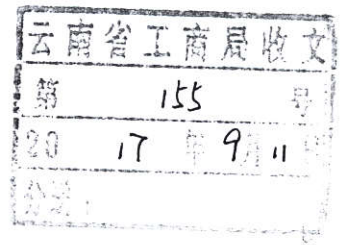 云南省工商局收文
第 155 号
20 17 年 9月 11 日
分送：